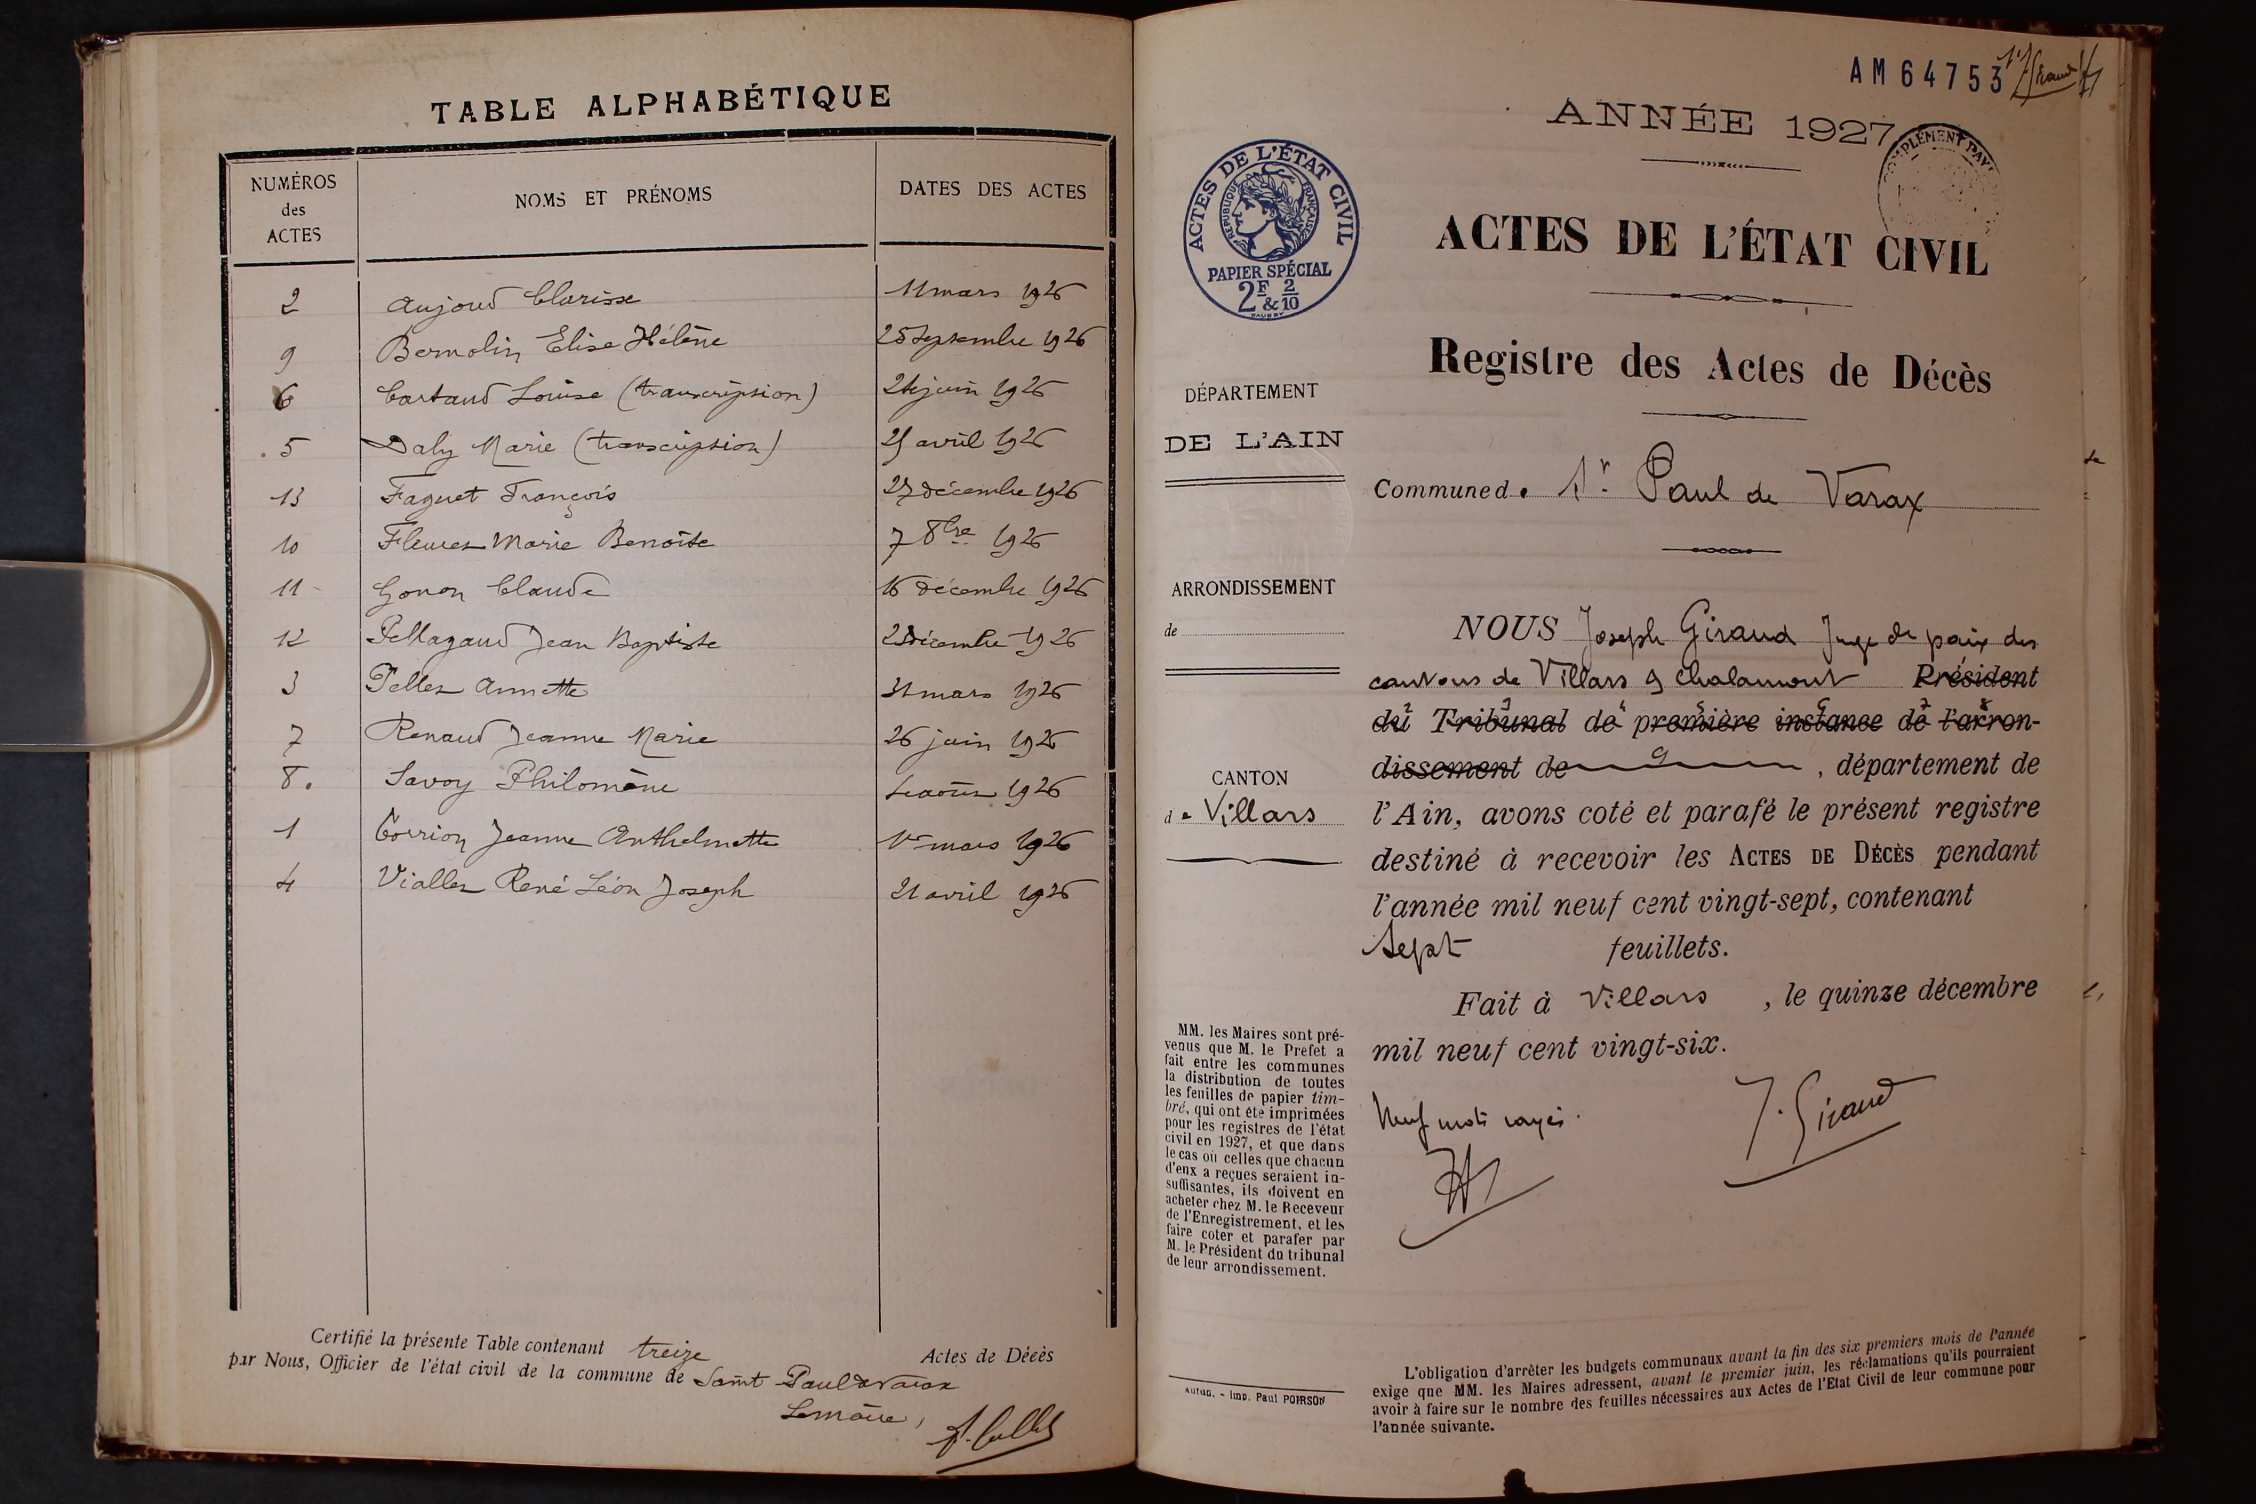 TABLE ALPHABÉTIQUE
NUMÉROS des ACTES
NOMS ET PRÉNOMS
DATES DES ACTES
2 Aujoud Clarisse 11 mars 1926
9 Bernolin Elise Hélène 25 septembre 1926
6 Cartaud Louise (transcription) 24 juin 1926
5 Daly Marie (transcription) 25 avril 1926
13 Faguet François 27 décembre 1926
10 Marie Benoite 7 8bre 1926
11 Gonon Claude 16 décembre 1926
12 Pellagaud Jean Baptiste décembre 1926
3 Pellez Annette 31 mars 1926
7 Renaud Jeanne Marie 26 juin 1926
8 Savoy Philomène 1926
1 Jeanne Anthelmette 1er mars 1926
4 Viallez René Léon Joseph 21 avril 1926
Certifié la présente Table contenant treize Actes de Décès
par Nous, Officier de l'état civil de la commune de Saint Paul de Varax
Le maire,
AM 64753
ANNÉE 1927
COMPLÉMENT PAYÉ
ACTES DE L'ÉTAT CIVIL
RÉPUBLIQUE FRANÇAISE
PAPIER SPÉCIAL
2F & 2/10
ACTES DE L'ÉTAT CIVIL
Registre des Actes de Décès
DÉPARTEMENT
DE L'AIN
Commune de St Paul de Varax
ARRONDISSEMENT
de
CANTON
de Villars
NOUS Joseph Giraud Juge de paix des
cantons de Villars & Chalamont Président
du Tribunal de première instance de l'arron-
dissement de , département de
l'Ain, avons coté et parafé le présent registre
destiné à recevoir les ACTES DE DÉCÈS pendant
l'année mil neuf cent vingt-sept, contenant
Sept feuillets.
Fait à Villars , le quinze décembre
mil neuf cent vingt-six.
Neuf mots rayés.
J. Giraud
MM. les Maires sont pré-
venus que M. le Préfet a
fait entre les communes
la distribution de toutes
les feuilles de papier tim-
bré, qui ont été imprimées
pour les registres de l'état
civil en 1927, et que dans
le cas où celles que chacun
d'eux a reçues seraient in-
suffisantes, ils doivent en
acheter chez M. le Receveur
de l'Enregistrement, et les
faire coter et parafer par
M. le Président du tribunal
de leur arrondissement.
Autun. - Imp. Paul POIRSON
L'obligation d'arrêter les budgets communaux avant la fin des six premiers mois de l'année
exige que MM. les Maires adressent, avant le premier juin, les réclamations qu'ils pourraient
avoir à faire sur le nombre des feuilles nécessaires aux Actes de l'Etat Civil de leur commune pour
l'année suivante.